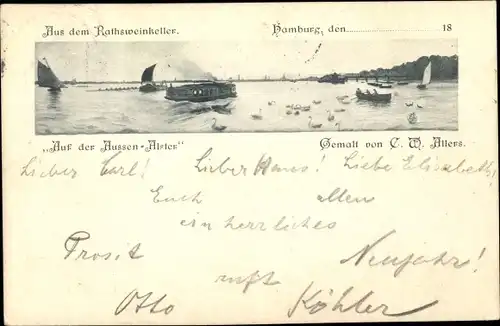 Aus dem Rathsweinkeller. Hamburg, den 18
„Auf der Aussen-Alster" Gemalt von C. W. Allers.
Lieber Carl! Lieber Hans! Liebe Elisabeth!
Euch allen
ein herrliches
Prosit Neujahr!
ruft
Otto Köhler